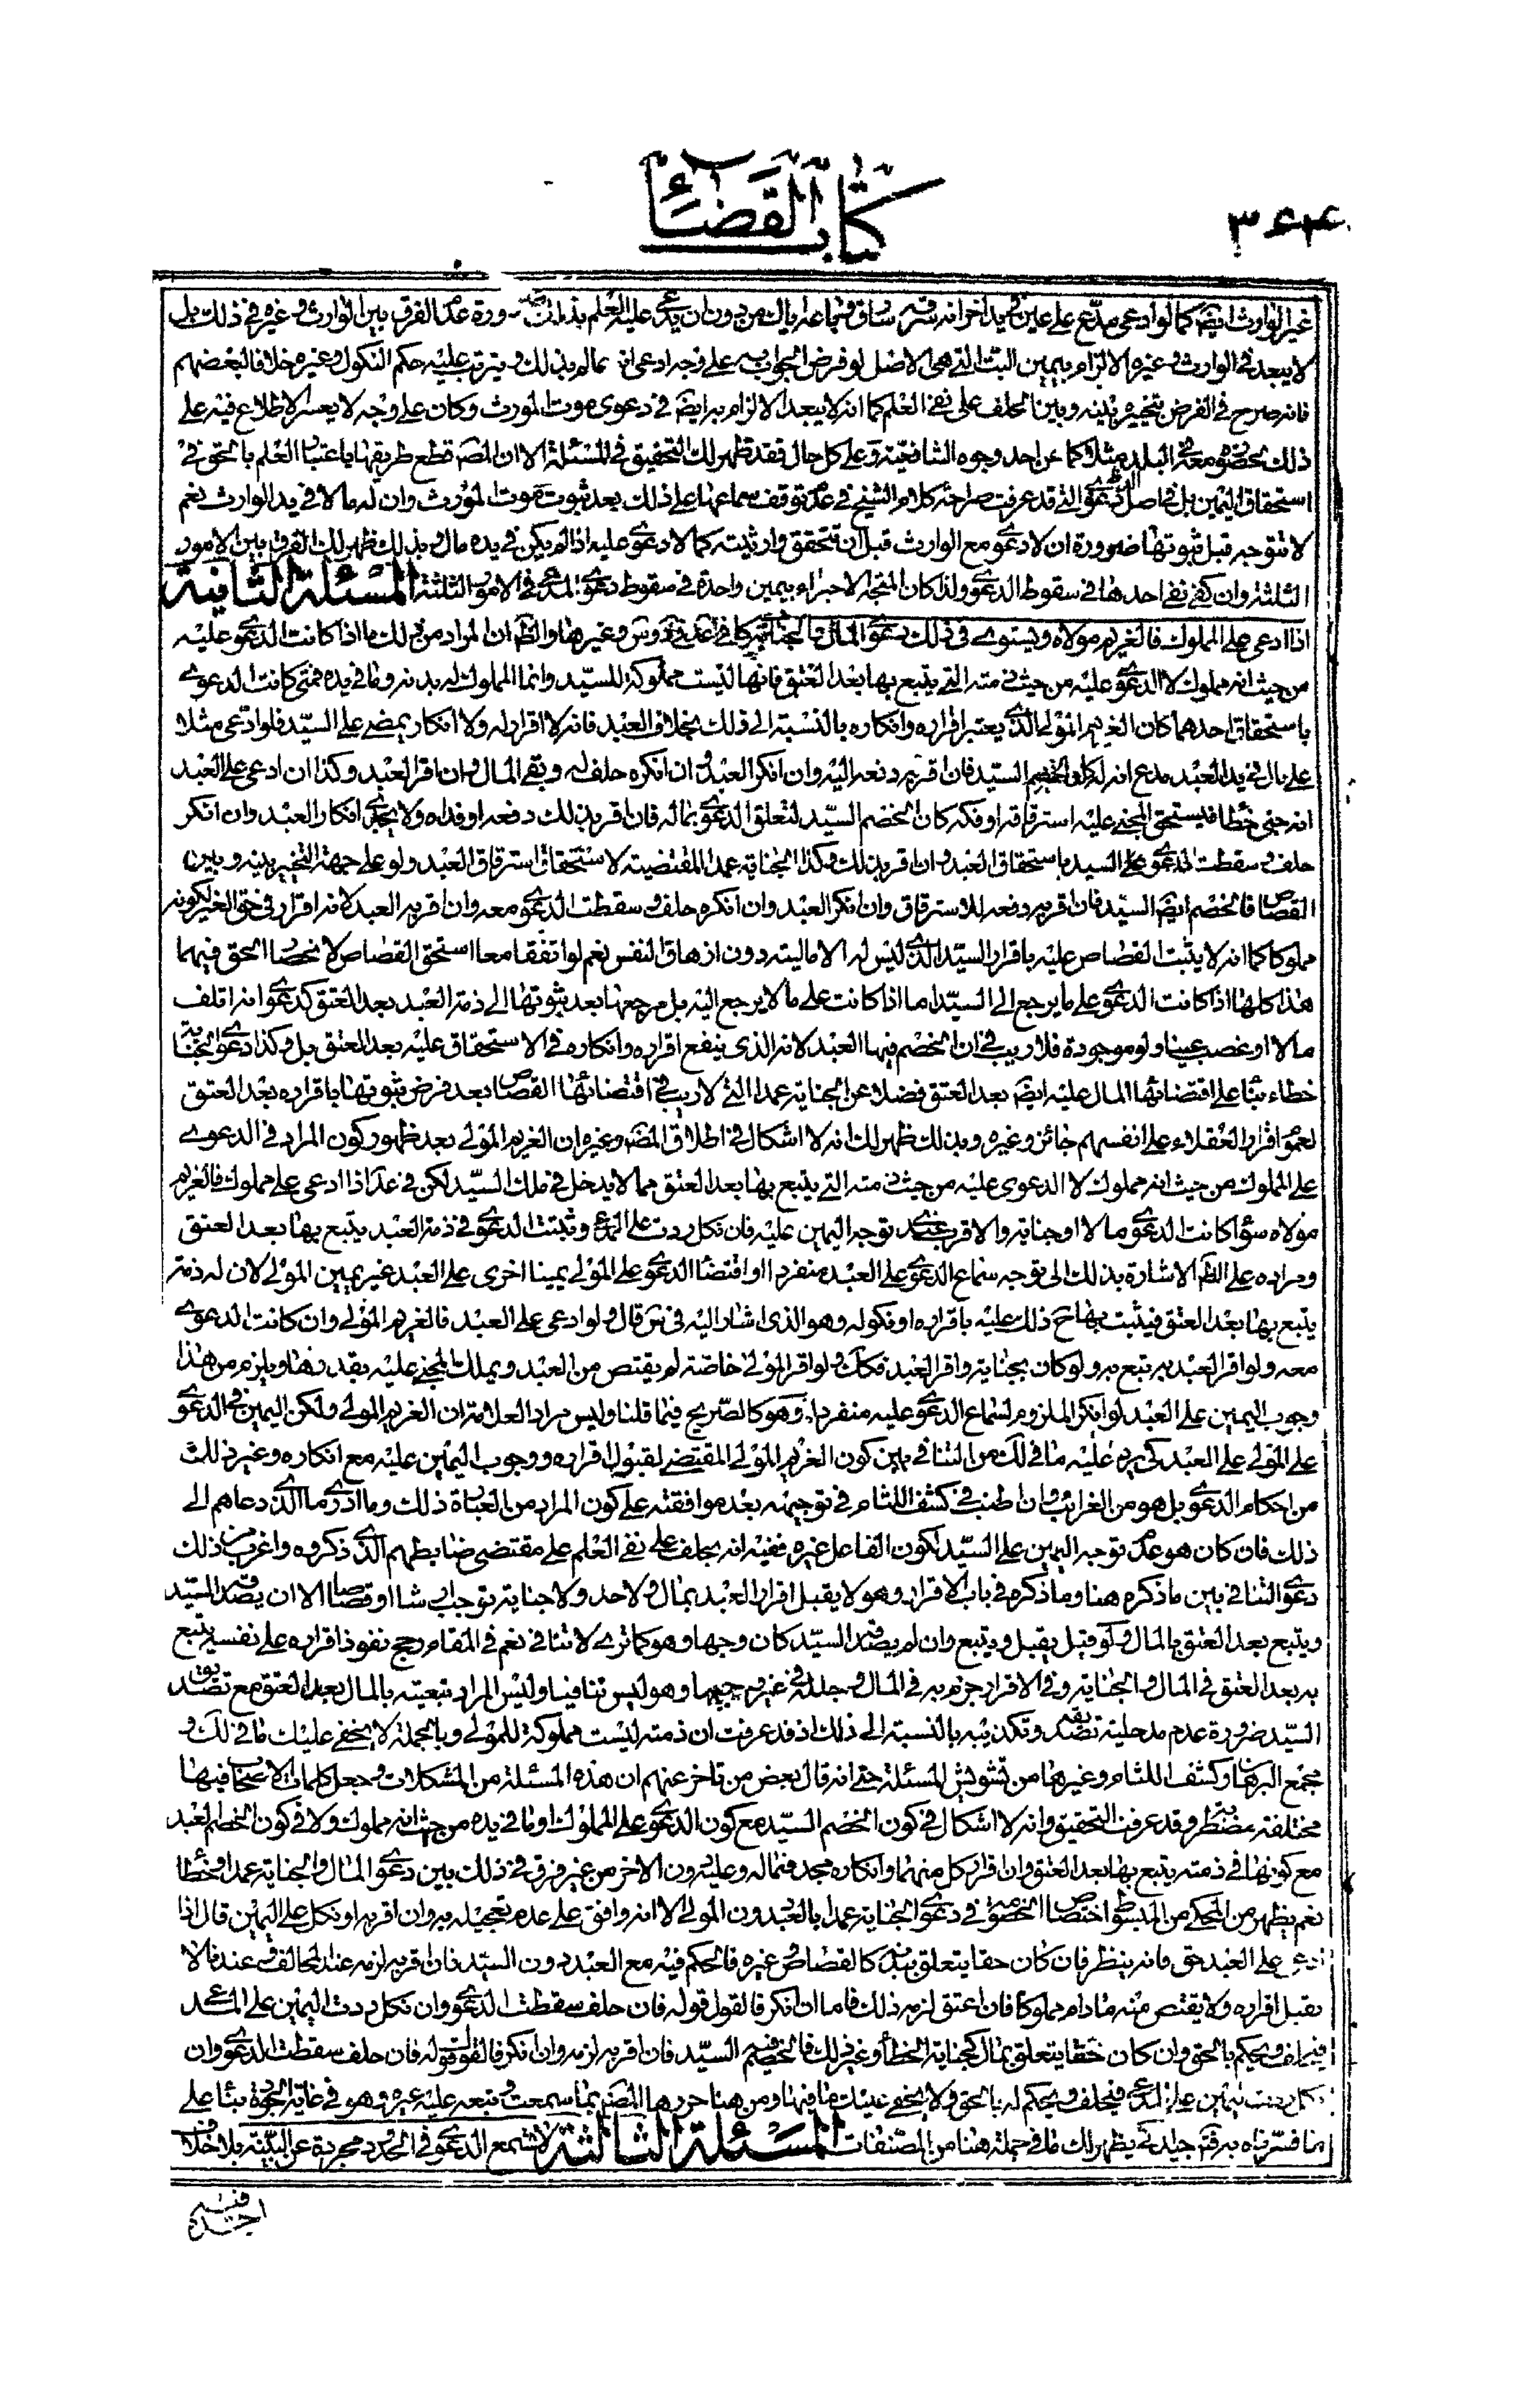 كتاب القضاء
٣٦٤
غير الوارث ايضا كما لوادعى مدّع على عين في يد اخر انه من دون ان يدعى عليه العلم بذلك ضرورة عدم الفرق بين الوارث وغيره في ذلك بل
لا يبعد في الوارث وغيره الالزام بيمين البت التي هي الاصل لو فرض الجواب به على وجه ادعى انه عالم بذلك ويترتب عليه حكم النكول وغيره خلافا لبعضهم
فانه صرح في الفرض بتخييره بينه وبين الحلف على نفى العلم كما انه لا يبعد الالزام به ايضا في دعوى موت المورث وكان على وجه لا يعسر الاطلاع فيه على
ذلك بحضوره معه في البلد مثلا كما عن احد وجوه الشافعيّة وعلى كل حال فقد ظهر لك التحقيق في المسئلة الا ان المصـ قطع طريقها باعتبار العلم بالحق في
استحقاق اليمين بل في اصل الدعوى التي قد عرفت صراحة كلام الشيخ في عدم توقف سماعها على ذلك بعد ثبوت موت المورث وان له مالا في يد الوارث نعم
لا تتوجه قبل ثبوتها ضرورة ان لا دعوى مع الوارث قبل ان تتحقق وارثيته كما لا دعوى عليه اذا لم يكن في يده مال وبذلك ظهر لك الفرق بين الامور
الثلثة وان كفى نفى احدها في سقوط الدعوى ولذا كان المتجه الاجتزاء بيمين واحدة في سقوط دعوى المدعى في الامور الثلثة المسئلة الثانية
اذا ادعى على المملوك فالغريم مولاه ويستوى في ذلك دعوى المال والجناية كما في عد و س وغيرها والظ ان المراد من ذلك ما اذا كانت الدعوى عليه
من حيث انه مملوك لا الدعوى عليه من حيث ذمته التي يتبع بها بعد العتق فانها ليست مملوكة للسيّد وانما المملوك له بدنه وما في يده فمتى كانت الدعوى
باستحقاق احدهما كان الغريم المولى الذى يعتبر اقراره وانكاره بالنسبة الى ذلك بخلاف العبد فانه لا اقرار له ولا انكار يمضى على السيّد فلو ادّعى مثلا
على مال في يد العبد مدع انه له كان الخصم السيّد فان اقر به دفعه اليه وان انكر العبد وان انكره حلف له وبقى المال وان اقر العبد وكذا ان ادعى على العبد
انه جنى خطأ فيستحق المجنى عليه استرقاقه او فكه كان الخصم السيّد لتعلق الدعوى بماله فان اقر بذلك دفعه او فداه ولا يجدى انكار العبد وان انكر
حلف وسقطت الدعوى على السيد باستحقاق العبد وان اقر بذلك وكذا الجناية عمدا المقتضية لاستحقاق استرقاق العبد ولو على جهة التخيير بينه وبين
القصاص فالخصم ايضا السيّد فان اقر به دفعه للاسترقاق وان انكر العبد وان انكره حلف وسقطت الدعوى معه وان اقر به العبد لانه اقرار في حق الغير لكونه
مملوكا كما انه لا يثبت القصاص عليه باقرار السيّد الذى ليس له الا ماليته دون ازهاق النفس نعم لو اتفقا معا استحق القصاص لانحصار الحق فيهما
هذا كله اذا كانت الدعوى على ما يرجع الى السيّد اما اذا كانت على ما لا يرجع اليه بل مرجعها بعد ثبوتها الى ذمة العبد بعد العتق كدعوى انه اتلف
مالا او غصب عينا ولو موجودة فلا ريب في ان الخصم فيها العبد لانه الذى ينفع اقراره وانكاره في الاستحقاق عليه بعد العتق بل وكذا دعوى الجناية
خطاء بناء على اقتضائها المال عليه ايضا بعد العتق فضلا عن الجناية عمدا التي لا ريب في اقتضائها القصاص بعد فرض ثبوتها باقراره بعد العتق
لعموم اقرار العقلاء على انفسهم جائز وغيره وبذلك ظهر لك انه لا اشكال في اطلاق المصـ وغيره ان الغريم المولى بعد ظهور كون المراد في الدعوى
على المملوك من حيث انه مملوك لا الدعوى عليه من حيث ذمته التي يتبع بها بعد العتق مما لا يدخل في ملك السيّد لكن في عد اذا ادعى على مملوك فالغريم
مولاه سواء كانت الدعوى مالا او جناية والاقرب عندى توجه اليمين عليه فان نكل ردت على المدعى وثبتت الدعوى في ذمة العبد يتبع بها بعد العتق
ومراده على الظ الاشارة بذلك الى توجه سماع الدعوى على العبد منفردا او اقتضاء الدعوى على المولى يمينا اخرى على العبد غير يمين المولى لان له ذمة
يتبع بها بعد العتق فيثبت بها ح ذلك عليه باقراره او نكوله وهو الذى اشار اليه في س قال ولو ادعى على العبد فالغريم المولى وان كانت الدعوى
معه ولو اقر العبد به يتبع به ولو كان بجناية واقر العبد فكك ولو اقر المولى خاصّة لم يقتص من العبد ويملك المجنى عليه بقدرها ويلزم من هذا
وجوب اليمين على العبد لو انكر الملزوم لسماع الدعوى عليه منفردا وهو كالصّريح فيما قلنا وليس مراد العلامة ان الغريم المولى ولكن اليمين في الدعوى
على المولى على العبد كى يرد عليه ما في ذلك من التنافى بين كون الغريم المولى المقتضى لقبول اقراره ووجوب اليمين عليه مع انكاره وغير ذلك
من احكام الدعوى بل هو من الغرائب وان اطنب في كشف اللثام في توجيهه بعد موافقته على كون المراد من العبارة ذلك وما ادرى ما الذى دعاهم الى
ذلك فان كان هو عدم توجه اليمين على السيّد لكون الفاعل غيره ففيه انه يحلف على نفى العلم على مقتضى ضابطهم الذى ذكروه واغرب من ذلك
دعوى التنافى بين ما ذكره هنا وما ذكره في باب الاقرار وهو لا يقبل اقرار العبد بمال ولا حد ولا جناية توجب ارشا او قصاصا الا ان يصدقه السيّد
ويتبع بعد العتق بالمال ولو قيل يقبل ويتبع وان لم يصدقه السيّد كان وجها وهو كما ترى لا تنافى نعم في المقام رجح نفوذ اقراره على نفسه يتبع
به بعد العتق في المال والجناية وفي الاقرار جزم به في المال وجعله في غيره وجها وهو ليس تنافيا وليس المراد تبعيته بالمال بعد العتق مع تصديق
السيّد ضرورة عدم مدخلية تصديقه وتكذيبه بالنسبة الى ذلك اذ قد عرفت ان ذمته ليست مملوكة للمولى وبالجملة لا يخفى عليك ما في ذلك و
مجمع البرهان وكشف اللثام وغيرها من تشويش المسئلة حتى انه قال بعض من تاخر عنهم ان هذه المسئلة من المشكلات وجعل كلمات الاصحاب فيها
مختلفة مضطربة وقد عرفت التحقيق وانه لا اشكال في كون الخصم السيّد مع كون الدعوى على المملوك او ما في يده من حيث انه مملوك ولا في كون الخصم العبد
مع كونها في ذمته يتبع بها بعد العتق وان اقرار كل منهما وانكاره مجد فيما له وعليه دون الاخر من غير فرق في ذلك بين دعوى المال والجناية عمدا وخطأ
نعم يظهر من المحكى من المبسوط اختصاص الخصومة في دعوى الجناية عمدا بالعبد دون المولى الا انه وافق على عدم تعجيله به وان اقر به او نكل على اليمين قال اذا
ادعى على العبد حق فانه ينظر فان كان حقا يتعلق ببدنه كالقصاص وغيره فالحكم فيه مع العبد دون السيّد فان اقر به لزمه عند المخالف وعندنا لا
يقبل اقراره ولا يقتص منه مادام مملوكا فان اعتق لزمه ذلك فاما ان انكر فالقول قوله فان حلف سقطت الدعوى وان نكل ردت اليمين على المدعى
فيحلف ويحكم بالحق وان كان حقا يتعلق بمال كجناية الخطأ وغير ذلك فالخصم فيه السيّد فان اقر به لزمه وان انكر فالقول قوله فان حلف سقطت الدعوى وان
نكل ردت اليمين على المدعى فيحلف ويحكم له بالحق ولا يخفى عليك ما فيها ومن هنا حررها المصـ بما سمعت وتبعه عليه غيره وهو في غاية الجودة بناء على
ما فسرناه به فت جيدا كى يظهر لك ما في جملة هنا من المصنفات المسئلة الثالثة لا تسمع الدعوى في الحدود مجردة عن البيّنة بلا خلاف
فيه
اجده